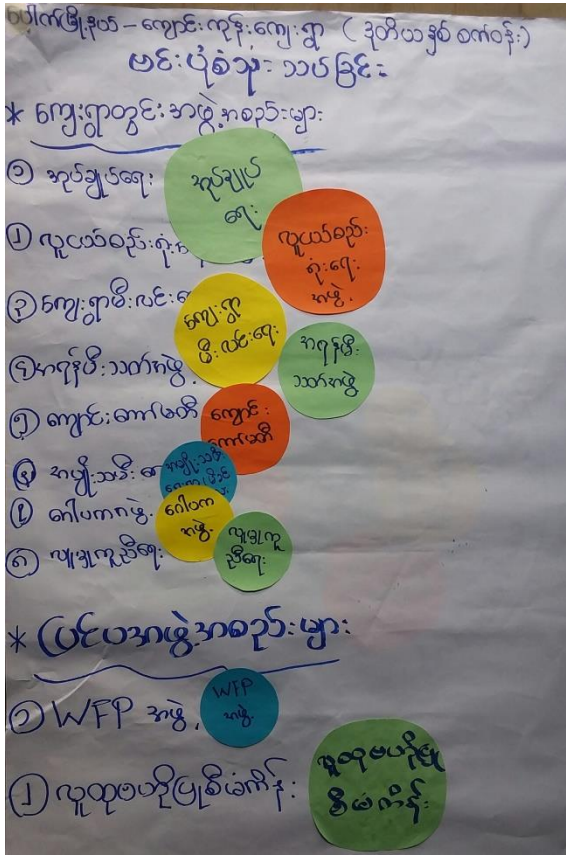 ပေါက်မြို့နယ် – ကျောင်းကုန်းကျေးရွာ (ဒုတိယနှစ် စက်ဝန်း)
ဗင်းပုံစံသုံးသပ်ခြင်း
* ကျေးရွာတွင်းအဖွဲ့အစည်းများ
၁ အုပ်ချုပ်ရေး
အုပ်ချုပ်
ရေး
၂ လူငယ်စည်းရုံး
လူငယ်စည်း
ရုံးရေး
အဖွဲ့
၃ ကျေးရွာမီးလင်း
ကျေးရွာ
မီးလင်းရေး
၄ အရန်မီးသတ်အဖွဲ့
အရန်မီး
သတ်အဖွဲ့
၅ ကျောင်းကော်မတီ
ကျောင်း
ကော်မတီ
၆ အမျိုးသမီး
အမျိုးသမီး
၇ ဂေါပကအဖွဲ့
ဂေါပက
အဖွဲ့
၈ လူမှုကူညီရေး
လူမှုကူ
ညီရေး
* ပြင်ပအဖွဲ့အစည်းများ
၁ WFP အဖွဲ့
WFP
အဖွဲ့
၂ လူထုဗဟိုပြုစီမံကိန်း
လူထုဗဟိုပြု
စီမံကိန်း